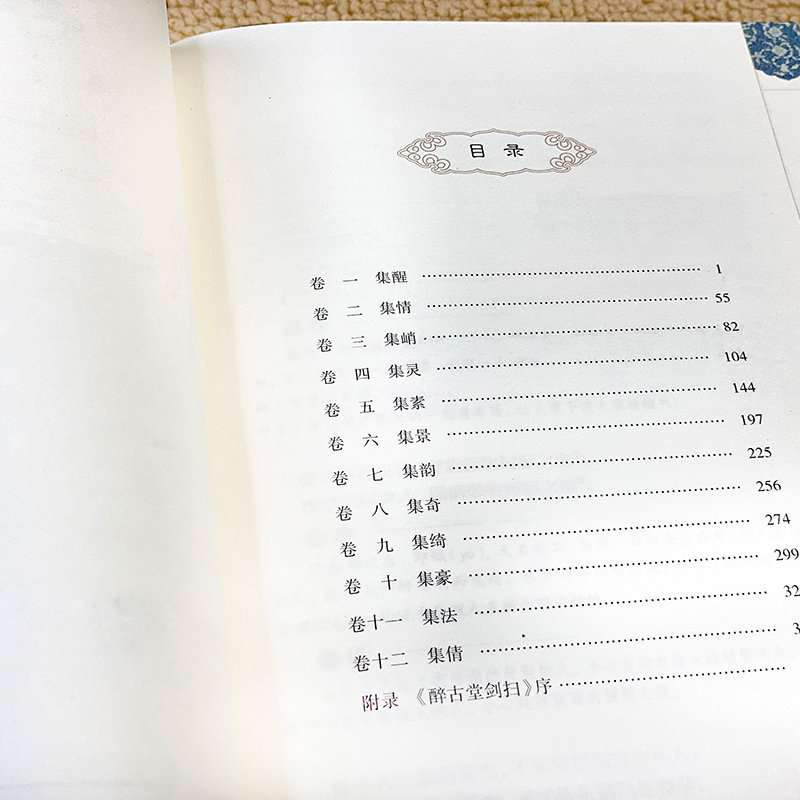 目录
卷一 集醒 …… 1
卷二 集情 …… 55
卷三 集峭 …… 82
卷四 集灵 …… 104
卷五 集素 …… 144
卷六 集景 …… 197
卷七 集韵 …… 225
卷八 集奇 …… 256
卷九 集绮 …… 274
卷十 集豪 …… 299
卷十一 集法 …… 32
卷十二 集倩 …… 3
附录 《醉古堂剑扫》序 ……